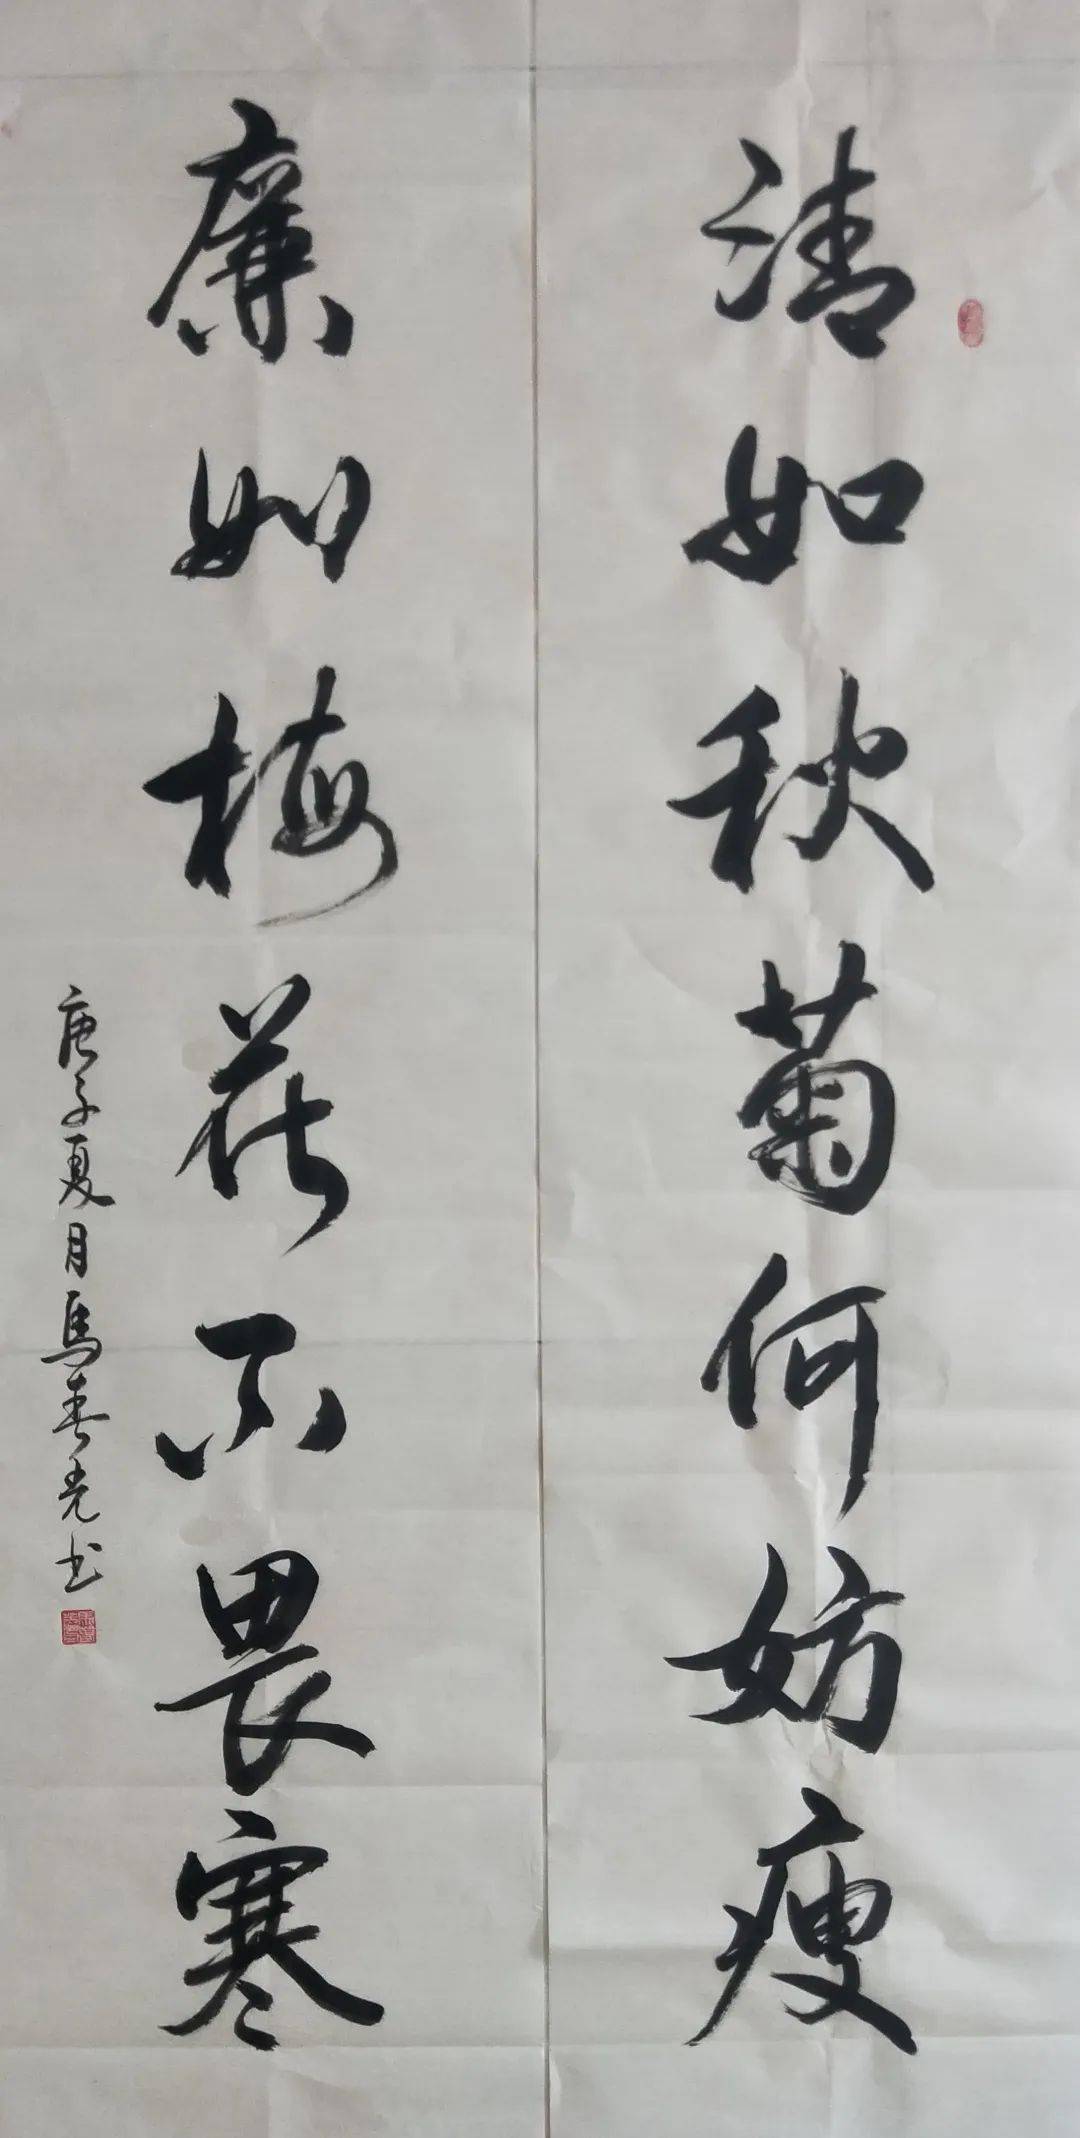 清如秋菊何妨瘦
廉如梅花不畏寒
庚子夏月馬春光书